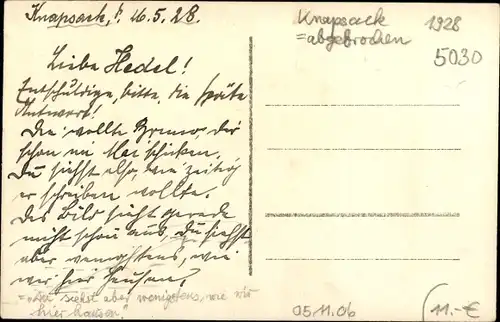 Knapsack, d. 16.5.28.
Liebe Hedel!
Entschuldige, bitte, die späte
Antwort!
Die wollte Bruno dir
schon im Mai schicken.
Du siehst also, wie zeitig
er schreiben wollte.
Das Bild sieht gerade
nicht schön aus, Du siehst
aber wenigstens, wie
wir hier hausen.
= „Du siehst aber wenigstens, wie wir
hier hausen."
Knapsack
= abgebrochen
1928
5030
05 11.06
11.-€